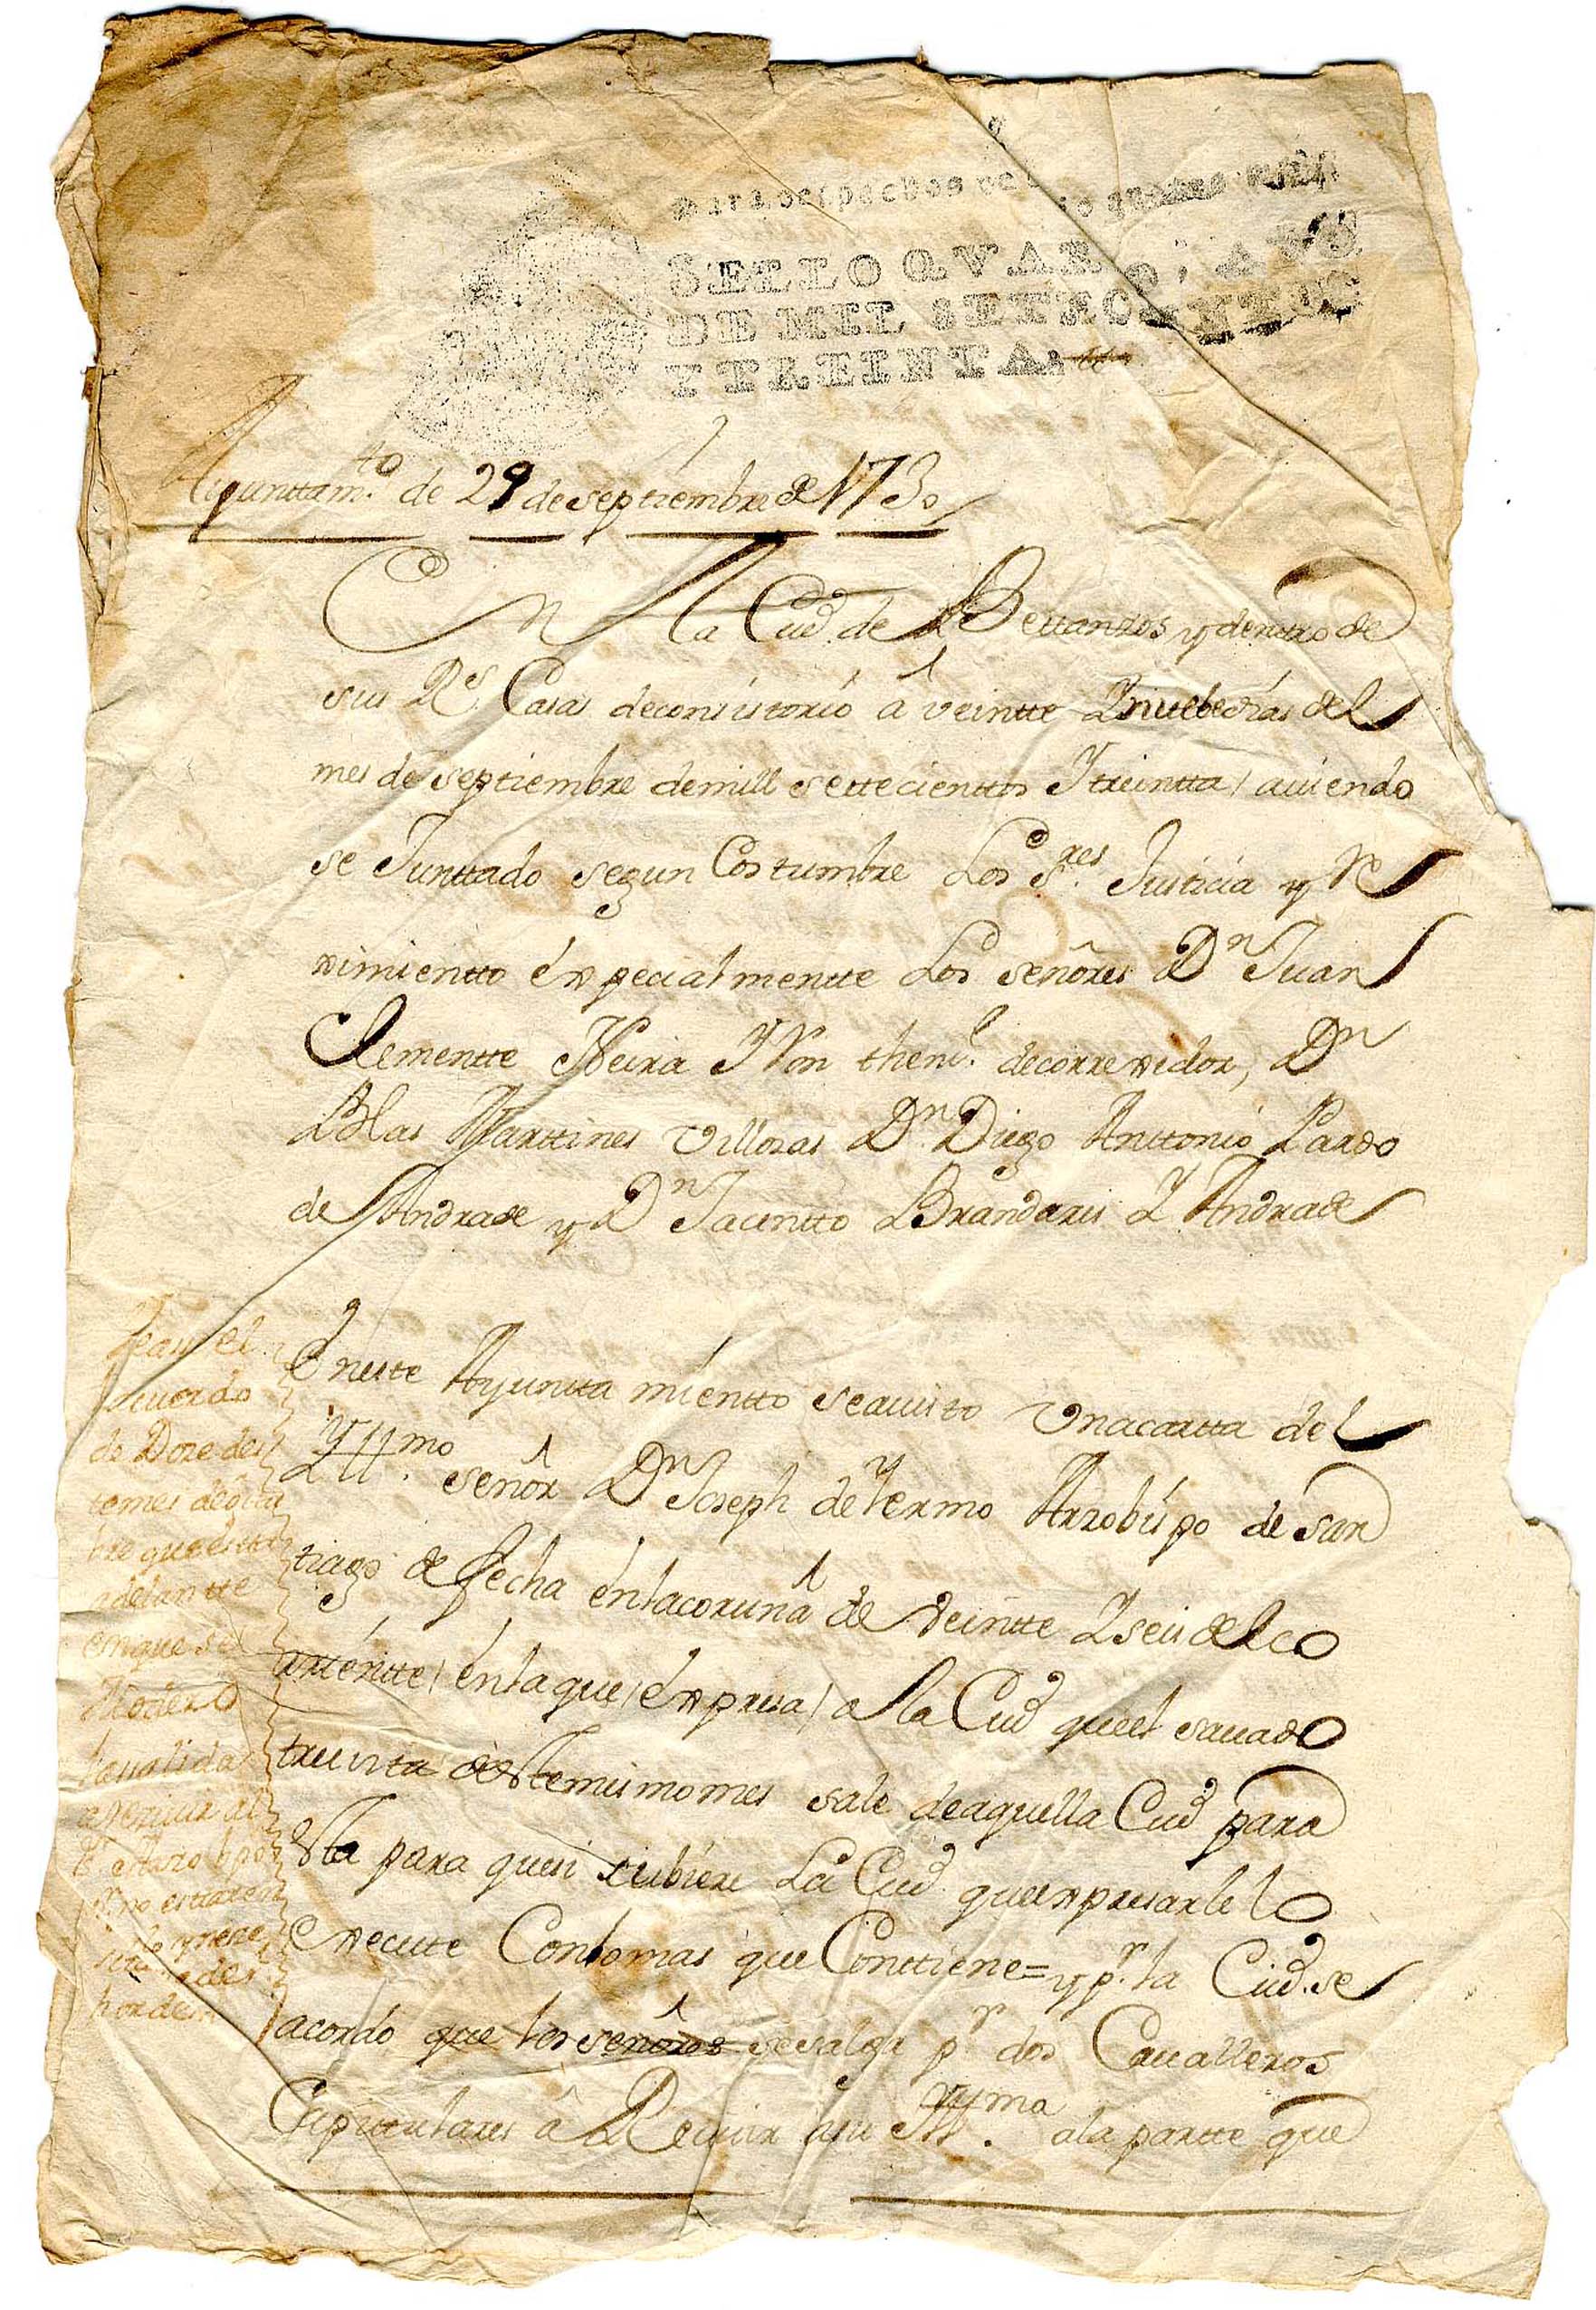 Para despachos de
SELLO QVARTO, AÑO
DE MIL SETECIENTOS
Y TREINTA.
Ayunttam.to de 29 de septiembre de 1730
En la Ciud. de Bettanzos y dentro de
sus R.s Casas deconsistorio â veintte Y nuebe días del
mes de septiembre demill settecienttos Y treintta / auiendo
se Junttado segun Costumbre Los S.res Justicia y Re
ximientto éxpecialmentte Los señôres D.n Juan
Clementte Neira Y Ron theni.e decorrexidor, D.n
Blas Marttines Villozas D.n Diego Anttonio Pardo
de Andrade y D.n Jacintto Brandaris Y Andrade
Eneste Ayuntta mientto seauisto Vnacartta del
Yll.mo señôr D.n Joseph de Yermo Arzobispo de San
tiago de fecha énlacoruñâ de Veintte Y seis delco
rriéntte / énlaque / éxpresa / a la Ciud queel sauado
treinta destemismomes sale deaquella Ciud para
esta para quesi tubiere La Ciud. queexpresarle lo
execute Conlomas que Conttiene = y p.r la Ciud. se
acordó que los señôres sesalga p.r dos Caualleros
Capitulares â Reciuir asu Yll.ma ala partte que
Veasse el
acuerdo
de Doze del
tomes deôctu
bre queestâ
adelantte
enque se
Moderô
lasalida
arreciuir al
S.r Arzobpo